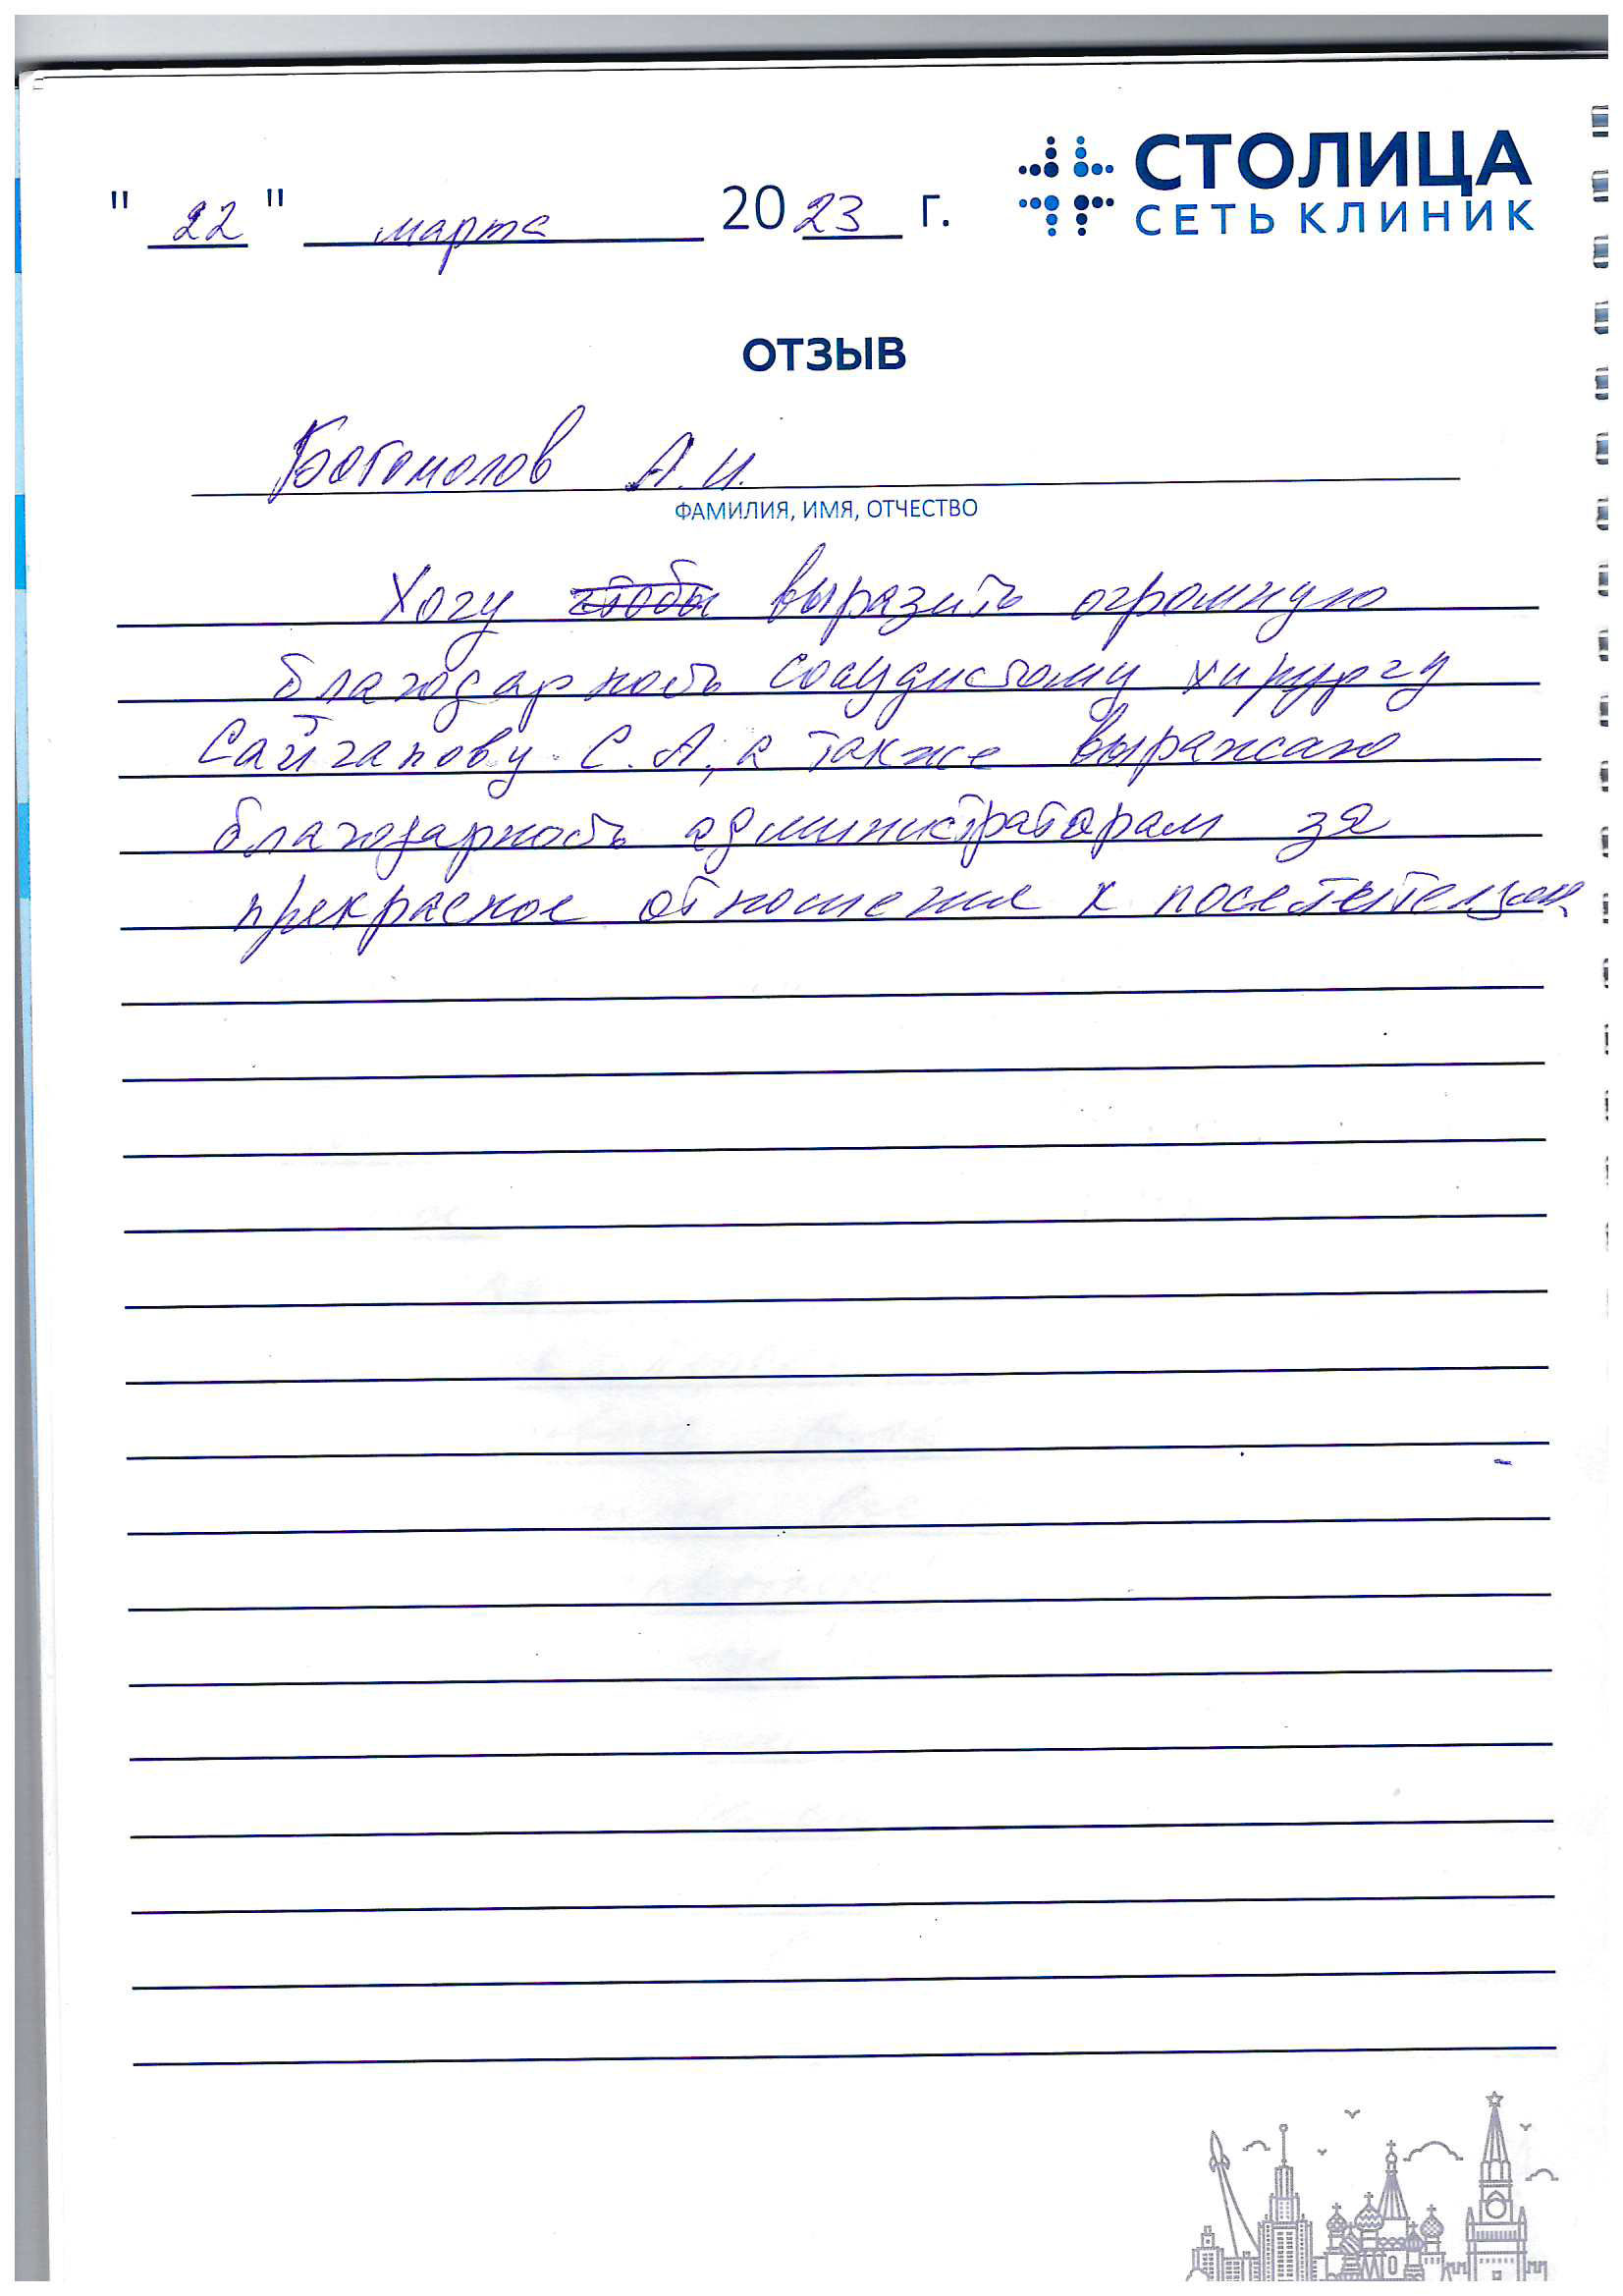 СТОЛИЦА
СЕТЬ КЛИНИК
" 22 " марта 2023 г.
ОТЗЫВ
Богомолов А.И.
ФАМИЛИЯ, ИМЯ, ОТЧЕСТВО
Хогу чтобы выразить огромную
благодарность сосудистому хирургу
Сайганову С.А., а также выражаю
благодарность администраторам за
прекрасное отношение к посетителям